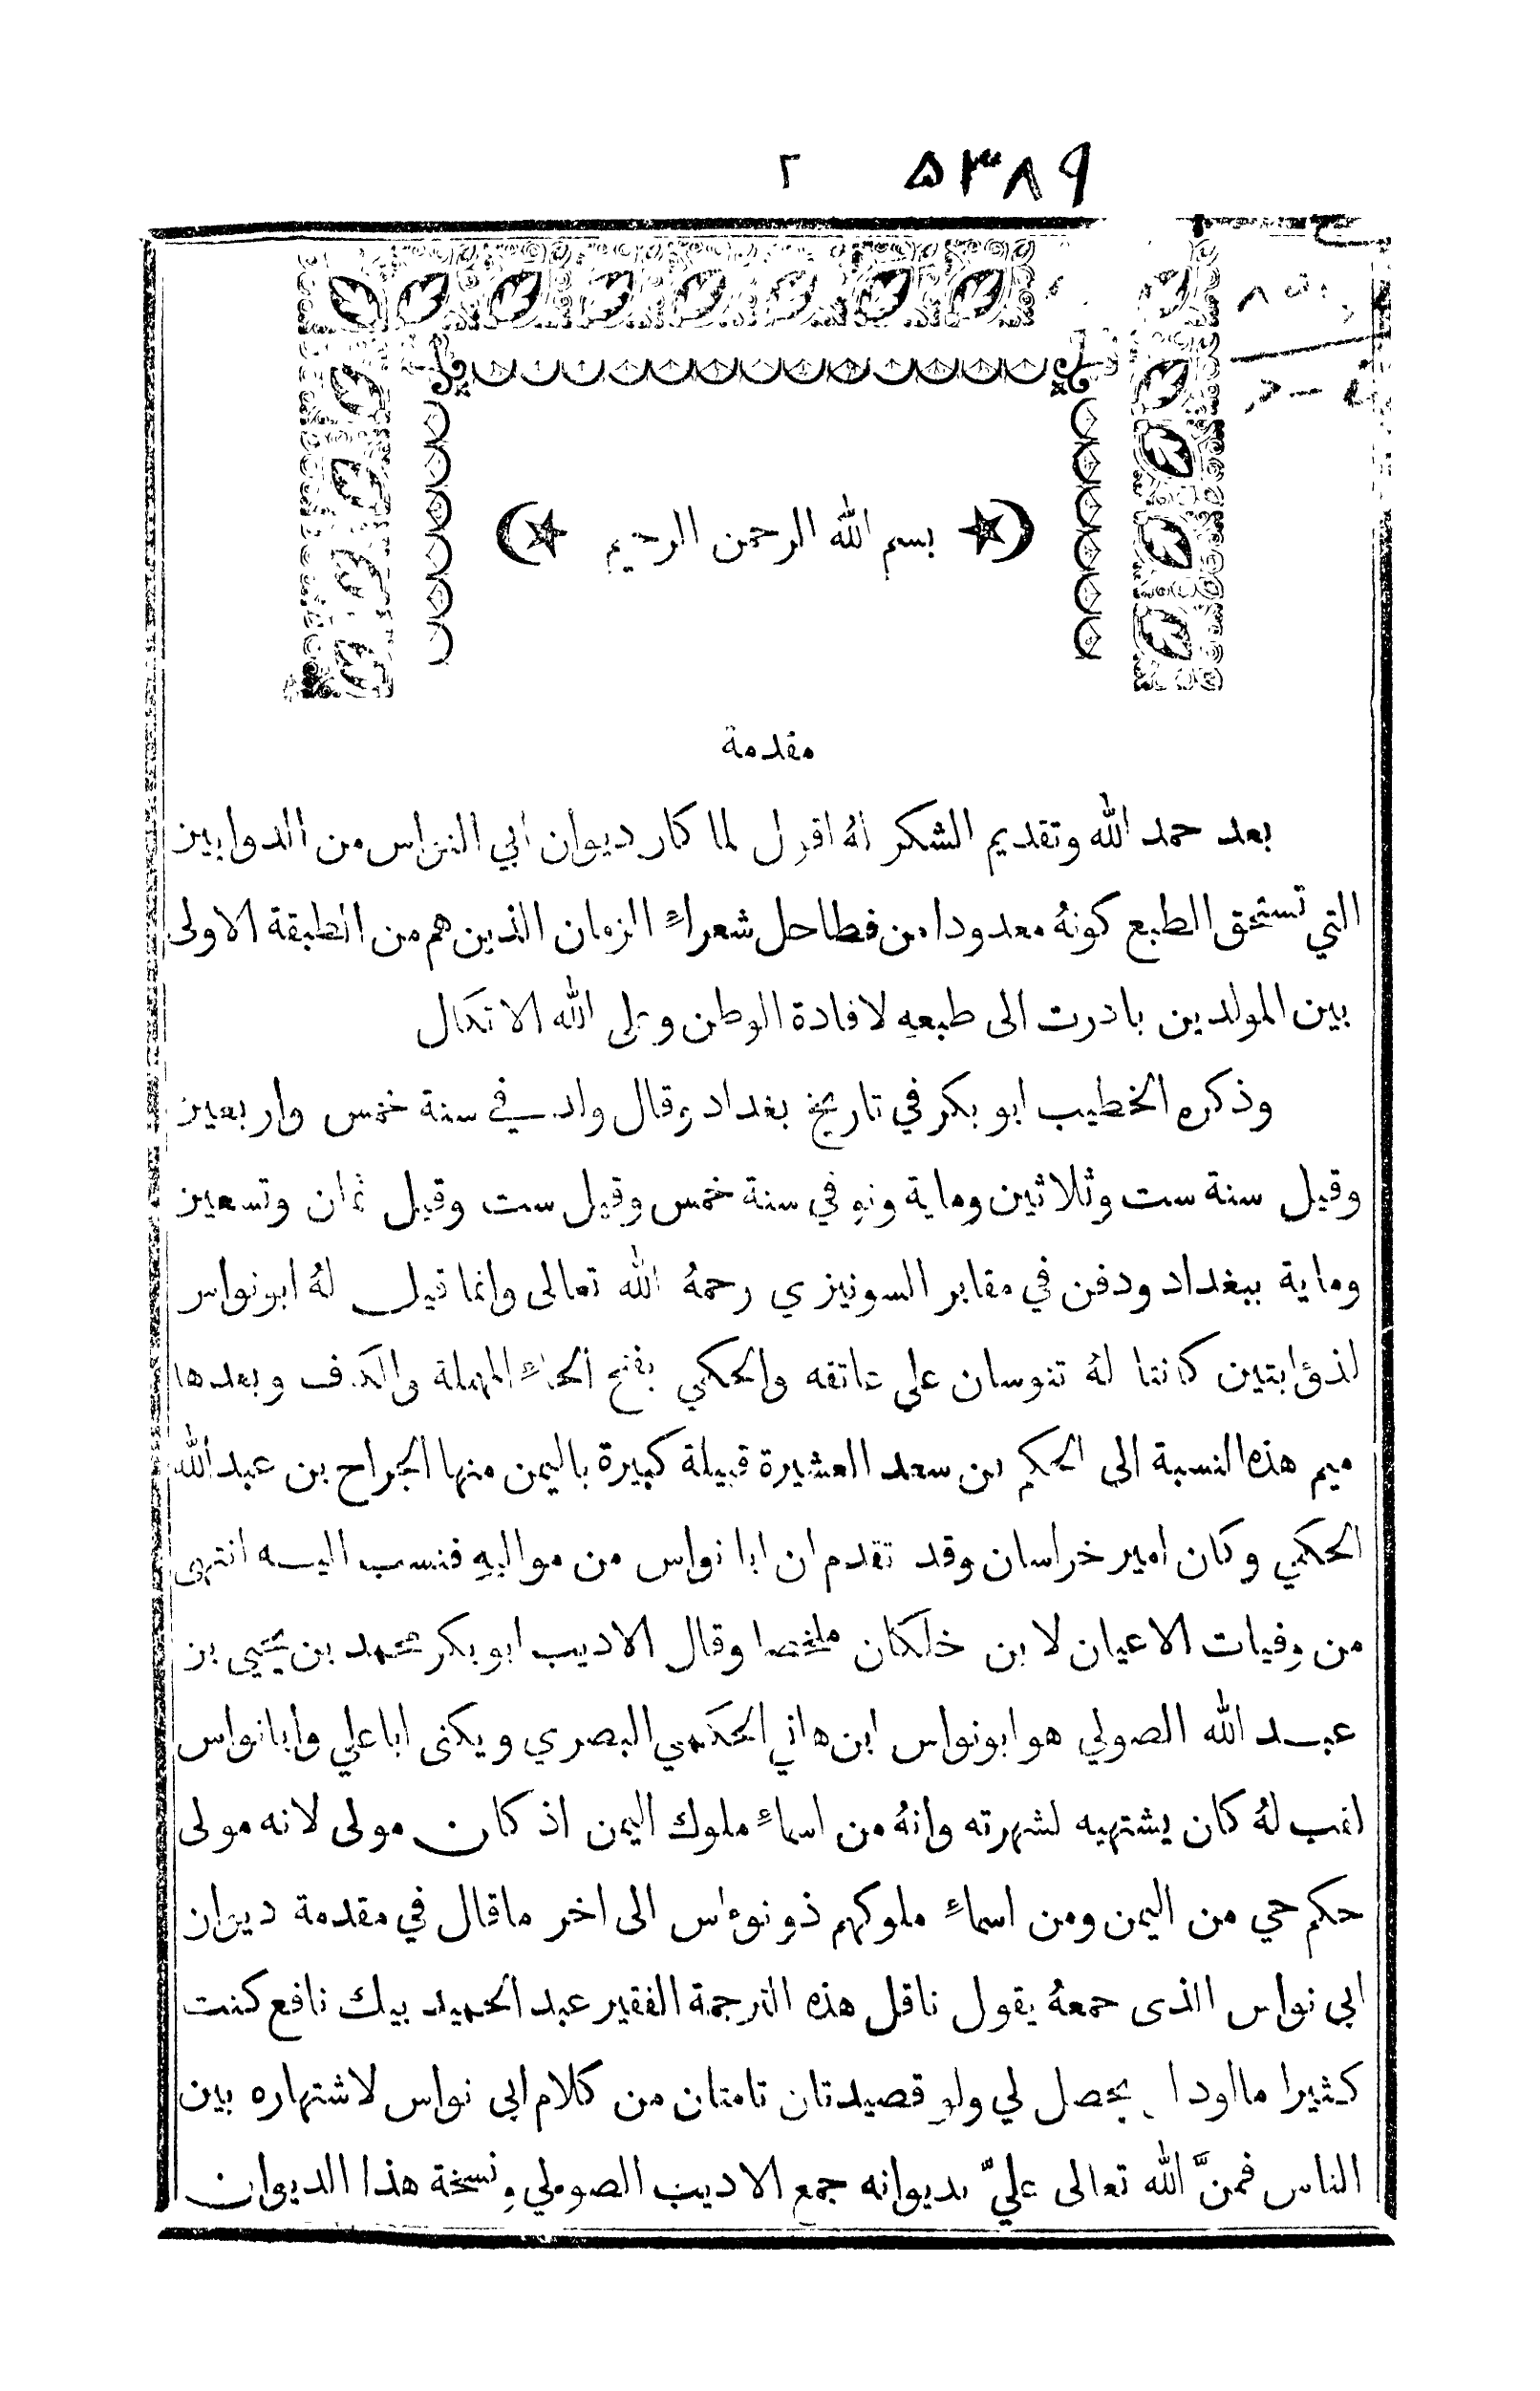 ٢ ۵۳۸۹
بسم الله الرحمن الرحيم
مقدمة
بعد حمد الله وتقديم الشكر لهُ اقول لما كان ديوان ابي النواس من الدواوين
التي تستحق الطبع كونهُ معدودا من فطاحل شعراءِ الزمان الذين هم من الطبقة الاولى
بين المولدين بادرت الى طبعهِ لافادة الوطن وعلى الله الاتكال
وذكره الخطيب ابو بكر في تاريخ بغداد وقال ولد في سنة خمس واربعين
وقيل سنة ست وثلاثين وماية وتوفي سنة خمس وقيل ست وقيل ثمان وتسعين
وماية ببغداد ودفن في مقابر السونيزي رحمهُ الله تعالى وانما قيل لهُ ابو نواس
لذؤابتين كانتا لهُ تنوسان على عاتقه والحكمي بفتح الحاءِ المهملة والكاف وبعدها
ميم هذه النسبة الى الحكم بن سعد العشيرة قبيلة كبيرة باليمن منها الجراح بن عبد الله
الحكمي وكان امير خراسان وقد تقدم ان ابا نواس من مواليهِ فنسب اليه انتهى
من وفيات الاعيان لابن خلكان ملخصا وقال الاديب ابو بكر محمد بن يحيى بن
عبد الله الصولي هو ابو نواس ابن هاني الحكمي البصري ويكنى ابا علي وابا نواس
لقب لهُ كان يشتهيه لشهرته وانهُ من اسماءِ ملوك اليمن اذ كان مولى لانه مولى
حكم حي من اليمن ومن اسماءِ ملوكهم ذو نوءاس الى اخر ما قال في مقدمة ديوان
ابي نواس الذى جمعهُ يقول ناقل هذه الترجمة الفقير عبد الحميد بيك نافع كنت
كثيرا ما اود ا يحصل لي ولو قصيدتان تامتان من كلام ابي نواس لاشتهاره بين
الناس فمنَّ الله تعالى عليَّ بديوانه جمع الاديب الصولي ونسخة هذا الديوان